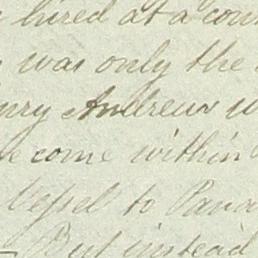 hired at a cou
was only the
nry Andrews w
come within
Vessel to Pana
But instead